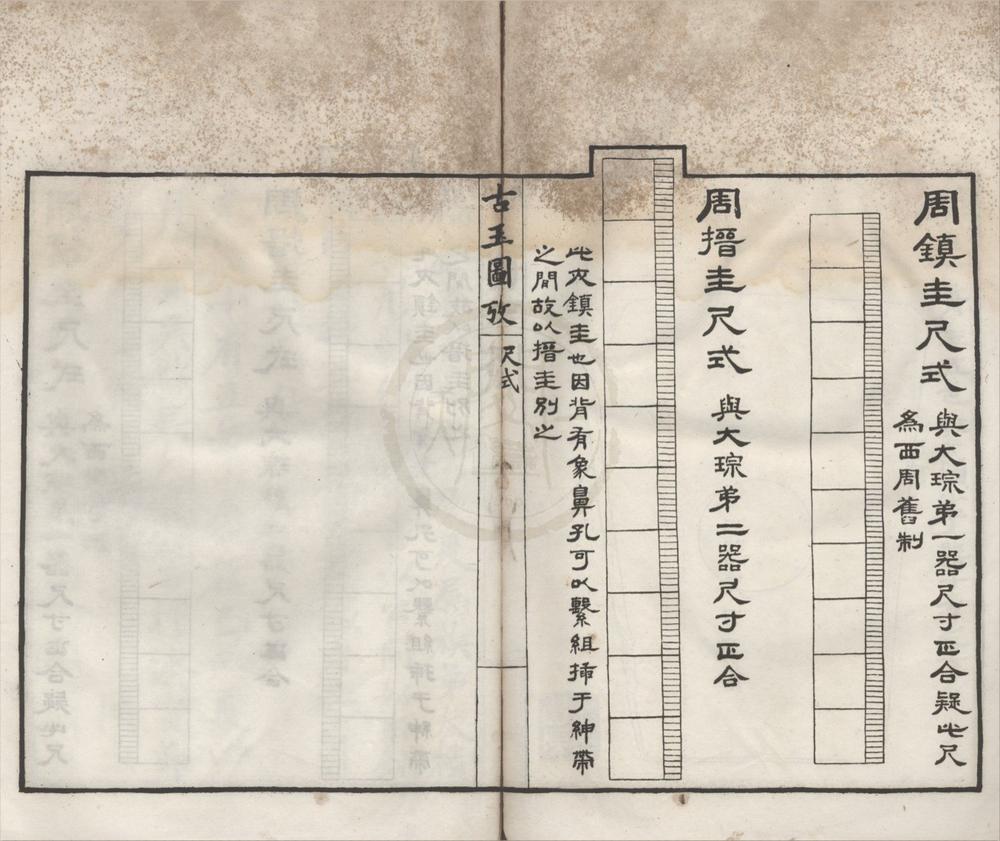 周鎮圭尺式
與大琮弟一器尺寸正合疑此尺
為西周舊制
周搢圭尺式
與大琮弟二器尺寸正合
此亦鎮圭也因背有象鼻孔可以繫組揷于紳帶
之間故以搢圭別之
古玉圖攷
尺式